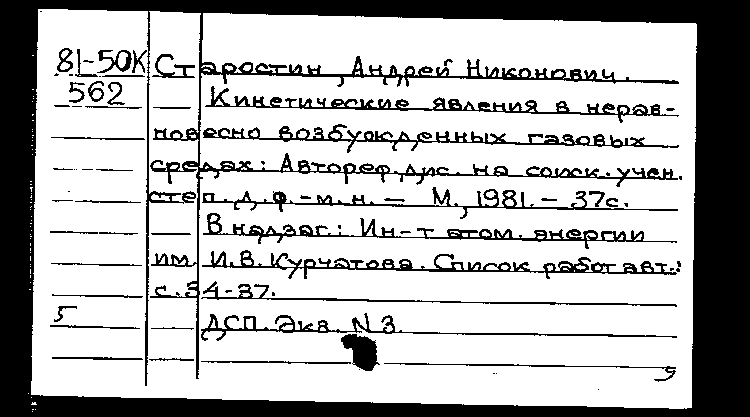 81-50К Старостин, Андрей Никонович.
562 Кинетические явления в нерав-
новесно возбужденных газовых
средах: Автореф. дис. на соиск. учен.
степ. д. ф.-м. н. — М., 1981. — 37с.
В надзаг.: Ин-т атом. энергии
им. И.В. Курчатова. Список работ авт.:
с. 34-37.
5 ДСП. Экз. N 3.